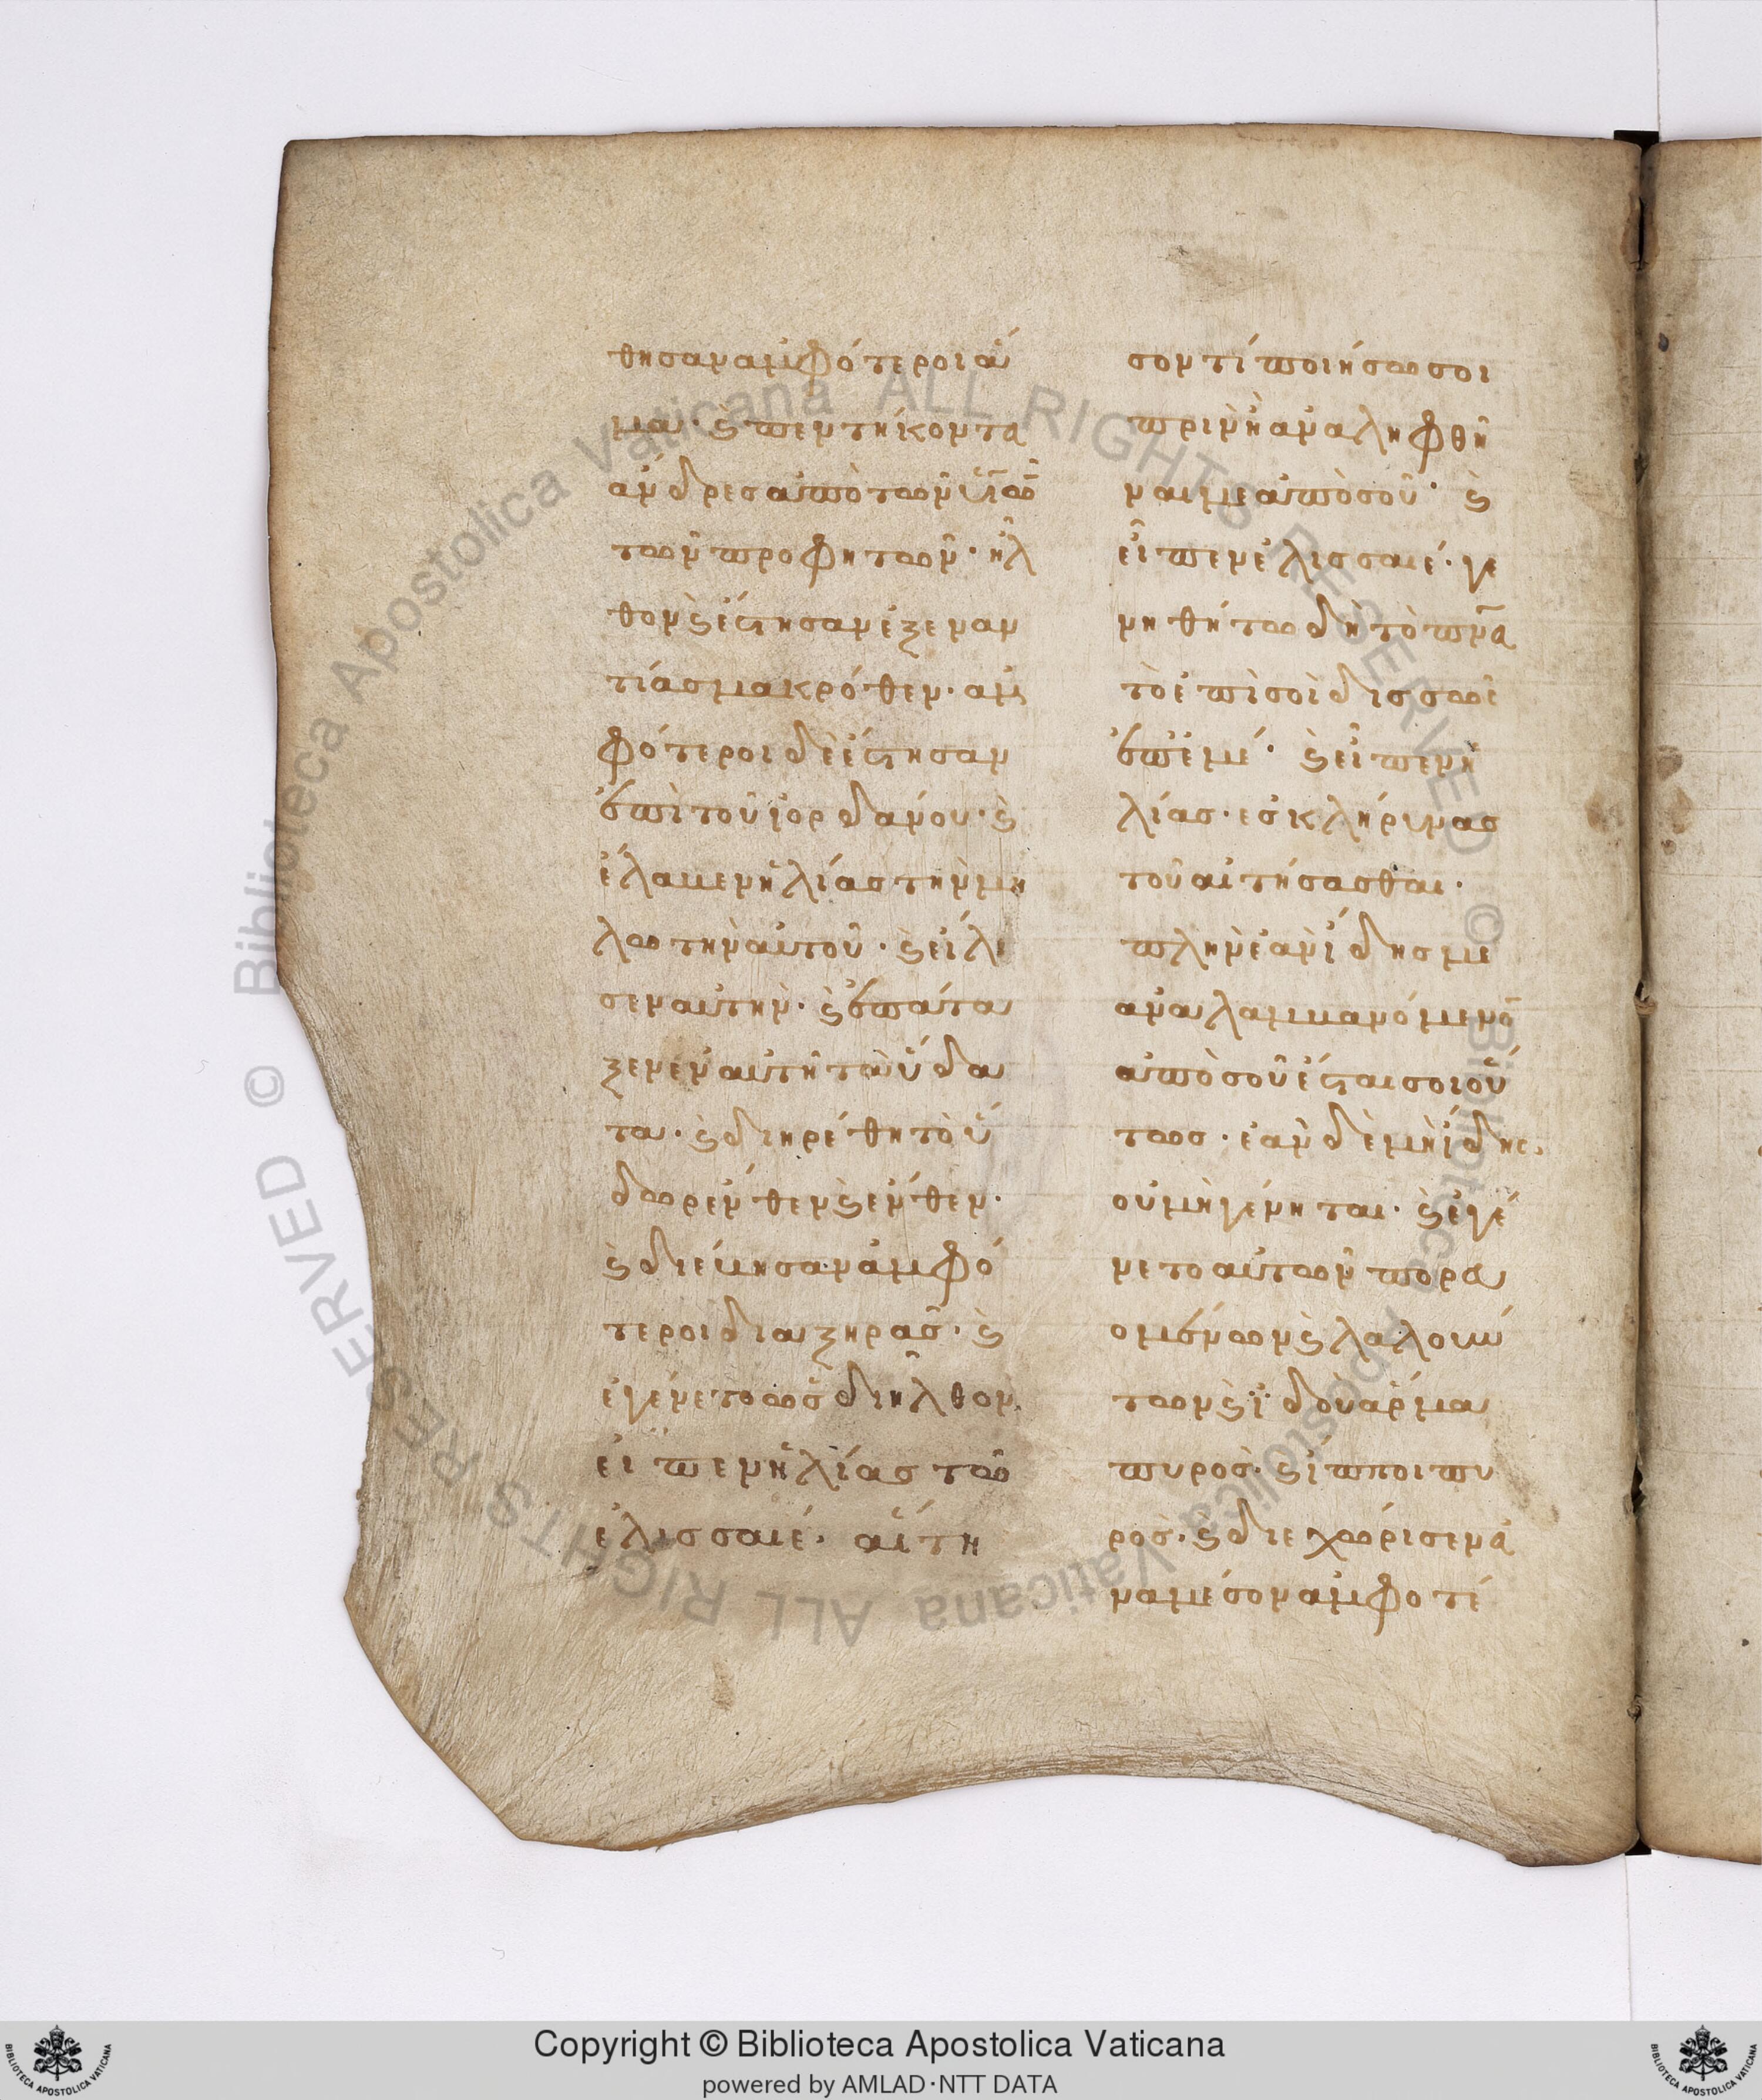 θησαν ἀμφότεροι ἅ
μα· ϗ πεντήκοντα
ἄνδρες ἀπὸ τῶν υἱῶν
τῶν προφητῶν· ἦλ
θον ϗ ἔστησαν ἐξεναν
τίας μακρόθεν· ἀμ
φότεροι δὲ ἔστησαν
ἐπὶ τοῦ ἰορδάνου· ϗ
ἔλαβεν ἠλίας τὴν μη
λωτὴν αὐτοῦ· ϗ εἵλι
σεν αὐτὴν· ϗ ἐπάτα
ξεν ἐν αὐτῆ τὰ ὕδα
τα· ϗ διηρέθη τὸ ὕ
δωρ ἔνθεν ϗ ἔνθεν·
ϗ διέβησαν ἀμφό
τεροι δια ξηρᾶς· ϗ
ἐγένετο ὡς διῆλθον
εἶπεν ἠλίας τῶ
ἐλισσαιέ· αἴτη
σον τί ποιήσω σοι
πρινὴ ἀναληφθῆ
ναι με ἀπὸ σοῦ· ϗ
εἶπεν ἐλισσαιέ· γε
νηθήτω δὴ τὸ πνᾶ
τὸ ἐπὶ σοὶ δισσῶς
ἐπ ἐμέ· ϗ εἶπεν ἠ
λίας· ἐσκλήρυνας
τοῦ αἰτήσασθαι·
πλὴν ἐὰν ἴδης με
ἀναλαμβανόμενον
ἀπὸ σοῦ ἔσται σοι οὕ
τως· ἐὰν δὲ μὴ ἴδης,
οὐ μὴ γένηται· ϗ ἐγέ
νετο αὐτῶν πορευ
ομένων ϗ λαλούν
των ϗ ἰδοὺ ἅρμα
πυρος· ϗ ἵπποι πυ
ρὸς· ϗ διεχώρισεν ἀ
ναμέσον ἀμφοτέ